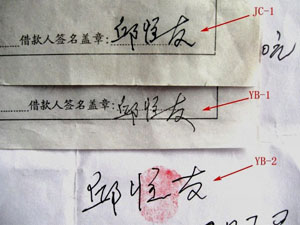 JC-1
借款人签名盖章：邱恒友
YB-1
借款人签名盖章：邱恒友
YB-2
邱恒友